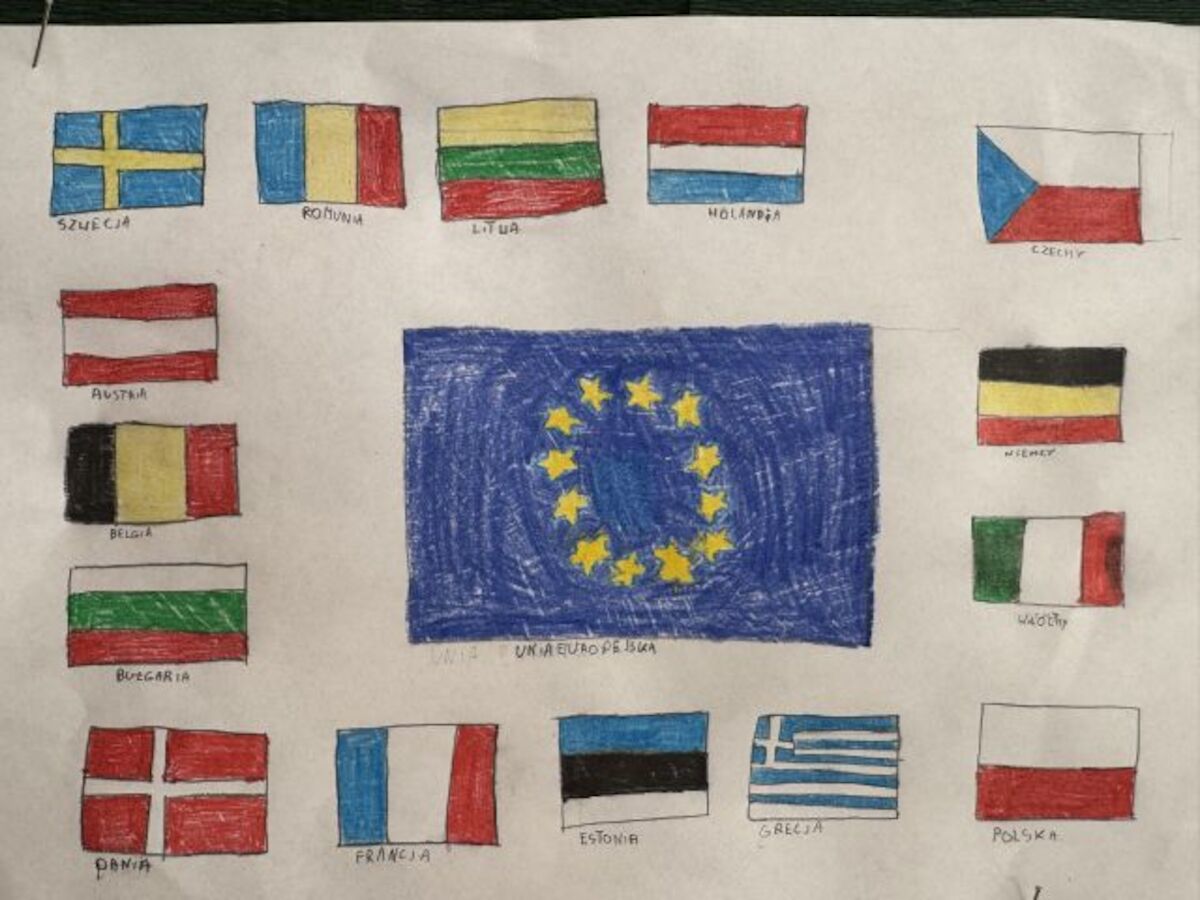 SZWECJA
ROMUNIA
LITWA
HOLANDIA
CZECHY
AUSTRIA
NIEMCY
BELGIA
WŁOCHY
UNIA EUROPEJSKA
BUŁGARIA
DANIA
FRANCJA
ESTONIA
GRECJA
POLSKA